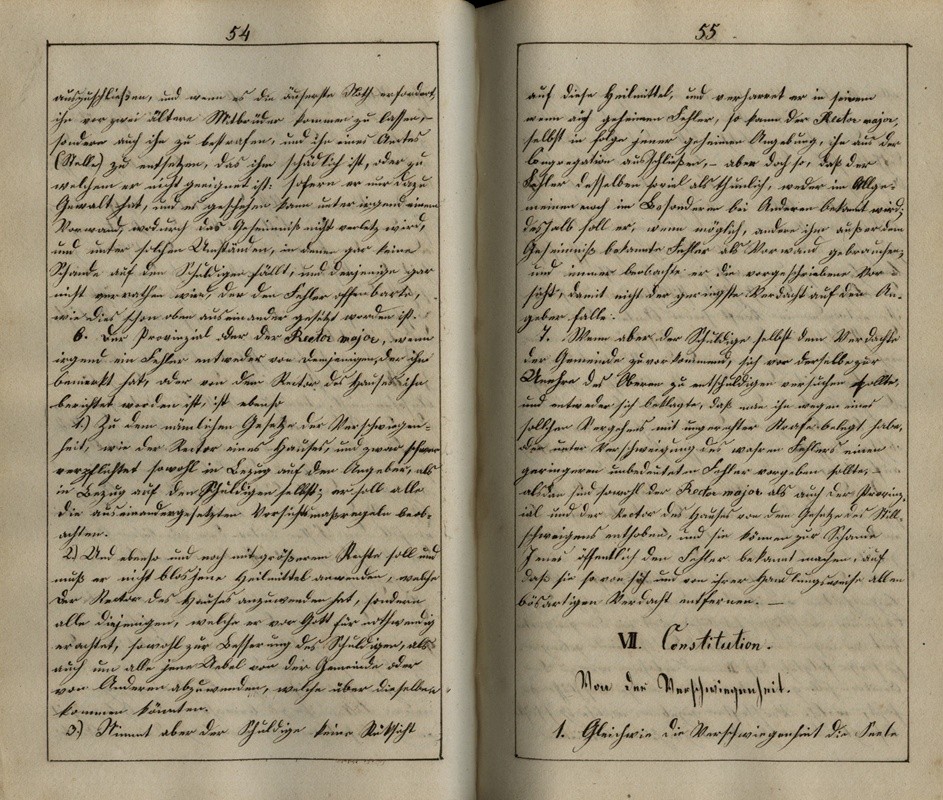 54
auszuschließen, und wenn es die äußerste Noth erfordert,
ihn vor zwei ältere Mitbrüder kommen zu lassen,
sondern auch ihn zu bestrafen, und ihn eines Amtes
(Stelle) zu entsetzen, das ihm schädlich ist, oder zu
welchem er nicht geeignet ist: sofern er nur dazu
Gewalt hat, und es geschehen kann unter irgend einem
Vorwand, wodurch das Geheimniß nicht verletzt wird,
und unter solchen Umständen, in denen gar keine
Schande auf den Schuldigen fällt, und derjenige gar
nicht verrathen wird, der den Fehler offenbarte,
wie dies schon oben auseinander gesetzt worden ist.
6. Der Provinzial oder der Rector major, wenn
irgend ein Fehler entweder von Demjenigen, der ihn
bemerkt hat, oder von dem Rector des Hauses ihm
berichtet worden ist, ist ebenso
1.) Zu dem nämlichen Gesetze der Verschwiegen-
heit, wie der Rector eines Hauses, und zwar schwer
verpflichtet sowohl in Bezug auf den Angeber, als
in Bezug auf den Schuldigen selbst; er soll alle
die auseinandergesetzten Vorsichtsmaßregeln beob-
achten.
2.) Und ebenso und noch mit größerem Rechte soll und
muß er nicht bloß jene Heilmittel anwenden, welche
der Rector des Hauses anzuwenden hat, sondern
alle diejenigen, welche er vor Gott für nothwendig
erachtet, sowohl zur Besserung des Schuldigen, als
auch um alle jene Uebel von der Gemeinde oder
von Anderen abzuwenden, welche über dieselben
kommen könnten.
3.) Nimmt aber der Schuldige keine Rüksicht
55
auf diese Heilmittel, und verharret er in seinem
wenn auch geheimen Fehler, so kann der Rector major,
selbst in Folge jener geheimen Angebung, ihn aus der
Congregation ausschließen, – aber doch so, daß der
Fehler desselben soviel als thunlich, weder im Allge-
meinen noch im Besonderen bei Anderen bekannt wird;
deshalb soll er, wenn möglich, andere ihm außer dem
Geheimniß bekannte Fehler als Vorwand gebrauchen,
und immer beobachte er die vorgeschriebene Vor-
sicht, damit nicht der geringste Verdacht auf den An-
geber falle.
7. Wenn aber der Schuldige selbst dem Verdachte
der Gemeinde zuvorkommend, sich vor derselben zur
Unehre des Oberen zu entschuldigen versuchen sollte,
und entweder sich beklagte, daß man ihn wegen eines
solchen Vergehens mit ungerechter Strafe belegt habe,
oder unter Verschweigung des wahren Fehlers einen
geringeren unbedeutenden Fehler vorgeben sollte, –
alsdan sind sowohl der Rector major als auch der Provinz-
ial und der Rector des Hauses von dem Gesetze des Still-
schweigens enthoben, und sie können zur Schande
Jenes öffentlich den Fehler bekannt machen, auf
daß sie so von sich und von ihrer Handlungsweise allen
bösartigen Verdacht entfernen. —
VII. Constitution.
Von der Verschwiegenheit.
1. Gleichwie die Verschwiegenheit die Seele